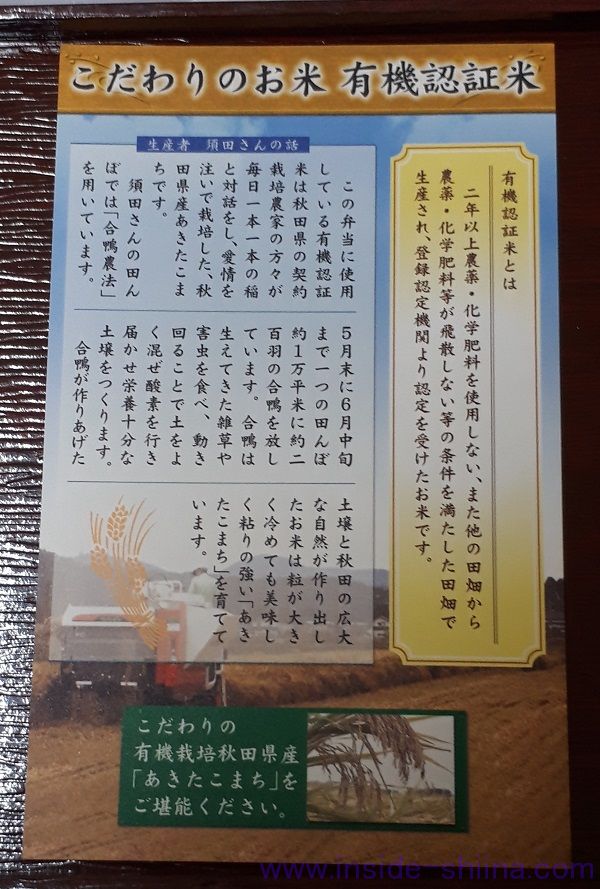 こだわりのお米 有機認証米
有機認証米とは
二年以上農薬・化学肥料を使用しない、また他の田畑から
農薬・化学肥料等が飛散しない等の条件を満たした田畑で
生産され、登録認定機関より認定を受けたお米です。
生産者 須田さんの話
この弁当に使用
している有機認証
米は秋田県の契約
栽培農家の方々が
毎日一本一本の稲
と対話をし、愛情を
注いで栽培した、秋
田県産あきたこま
ちです。
須田さんの田ん
ぼでは「合鴨農法」
を用いています。
5月末に6月中旬
まで一つの田んぼ
約1万平米に約二
百羽の合鴨を放し
ています。合鴨は
生えてきた雑草や
害虫を食べ、動き
回ることで土をよ
く混ぜ酸素を行き
届かせ栄養十分な
土壌をつくります。
合鴨が作りあげた
土壌と秋田の広大
な自然が作り出し
たお米は粒が大き
く冷めても美味し
く粘りの強い「あき
たこまち」を育てて
います。
こだわりの
有機栽培秋田県産
「あきたこまち」を
ご堪能ください。
www.inside-shiina.com